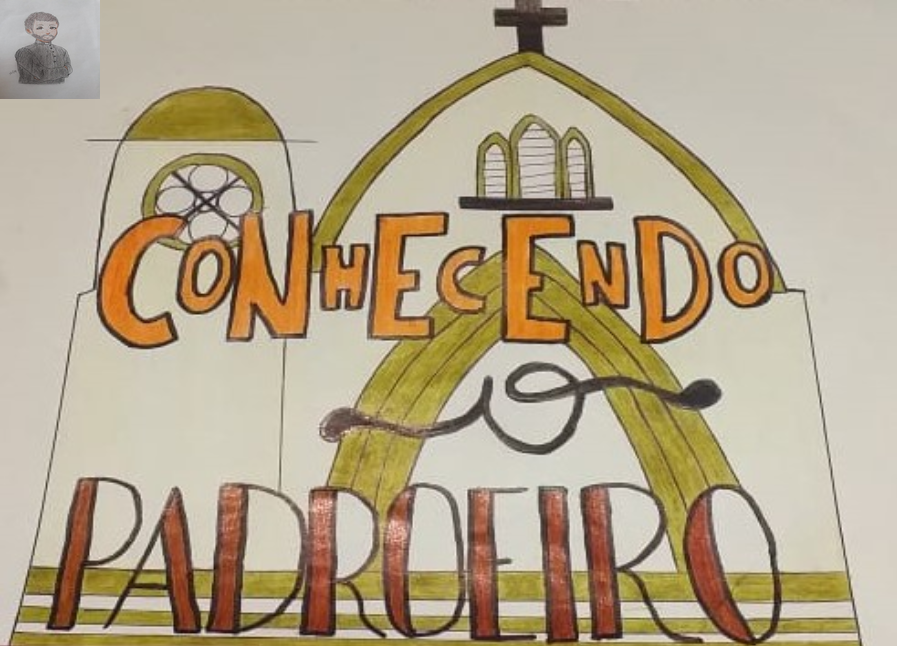 CONHECENDO
O
PADROEIRO